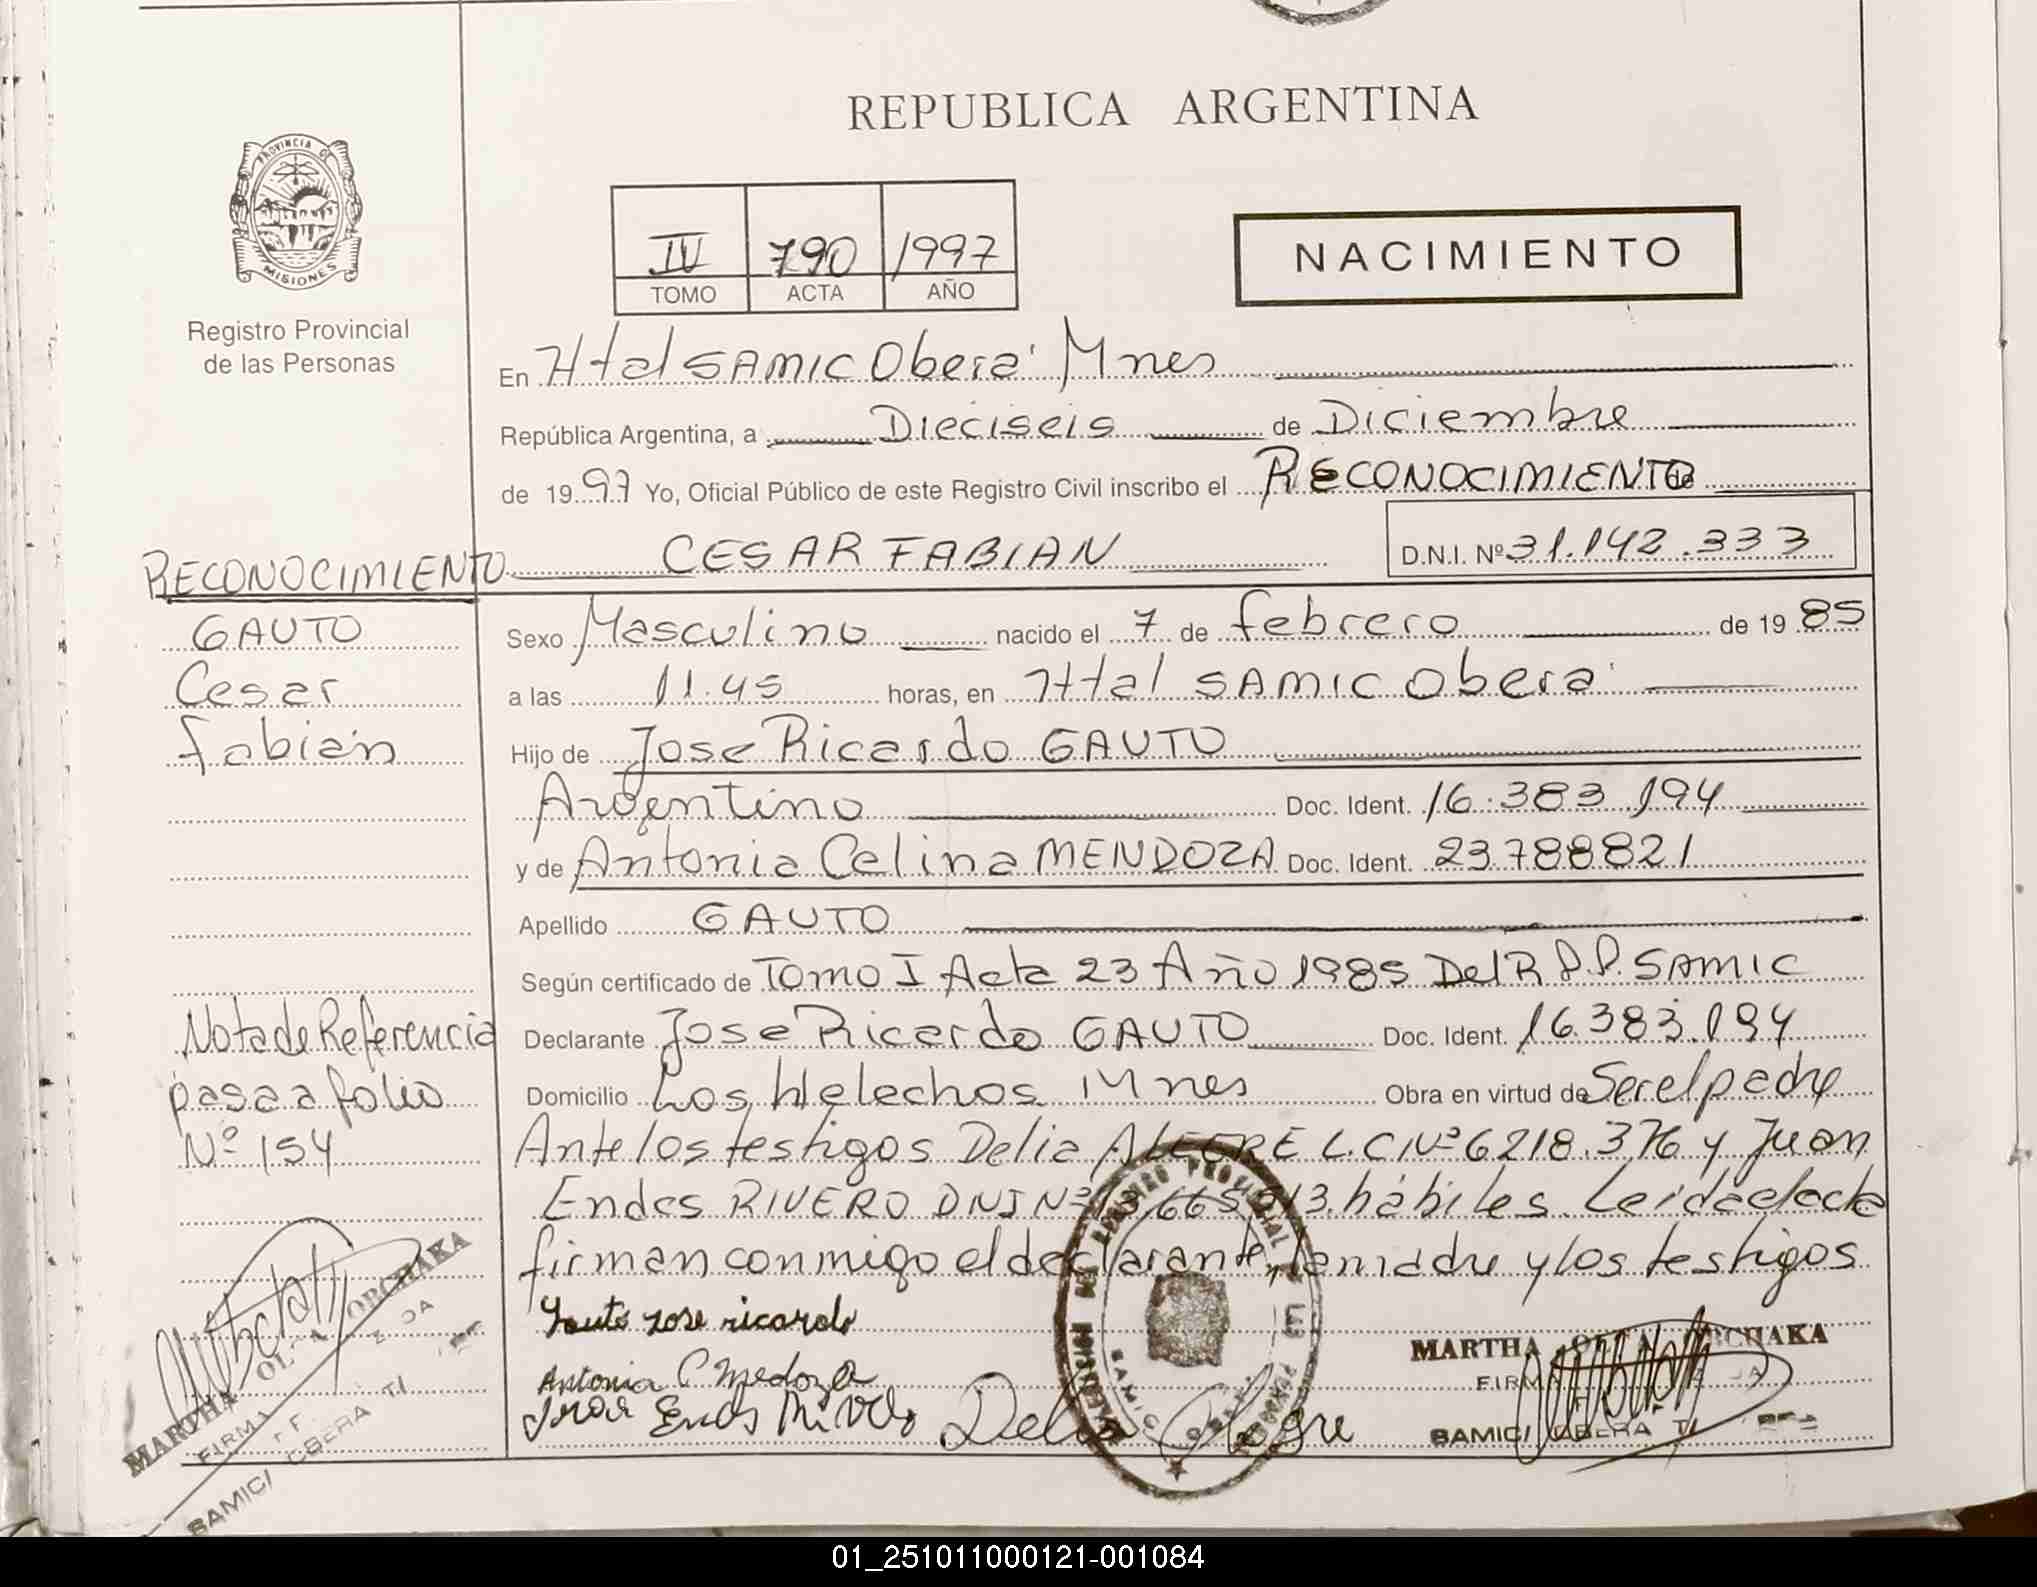 REPUBLICA ARGENTINA
PROVINCIA DE
MISIONES
Registro Provincial
de las Personas
IV 790 1997
TOMO ACTA AÑO
NACIMIENTO
En Htal SAMIC Oberá Mnes
República Argentina, a Dieciseis de Diciembre
de 1997 Yo, Oficial Público de este Registro Civil inscribo el RECONOCIMIENTO de
CESAR FABIAN D.N.I. Nº 31.142.333
RECONOCIMIENTO
GAUTO
Cesar
Fabián
Sexo Masculino nacido el 7 de febrero de 1985
a las 11.45 horas, en Httal SAMIC Oberá
Hijo de Jose Ricardo GAUTO
Argentino Doc. Ident. 16.383.194
y de Antonia Celina MENDOZA Doc. Ident. 23.788821
Apellido GAUTO
Según certificado de Tomo I Acta 23 Año 1985 Del R.P.P. SAMIC
Declarante Jose Ricardo GAUTO Doc. Ident. 16.383.194
Domicilio Los Helechos Mnes Obra en virtud de Ser el padre
Ante los testigos Delia ALEGRE L.C Nº 6218.376 y Juan
Endes RIVERO DNI Nº hábiles. Leida el acta
firman conmigo el declarante, la madre y los testigos
Nota de Referencia
pasa a folio
Nº 154
Gauto Jose ricardo
Antonia C Medoza
Endes Rivero
Delia Alegre
MARTHA ORCHAKA
FIRMA
SAMIC/ OBERA
MARTHA OLGA ORCHAKA
FIRMA
SAMIC/ OBERA
01_251011000121-001084